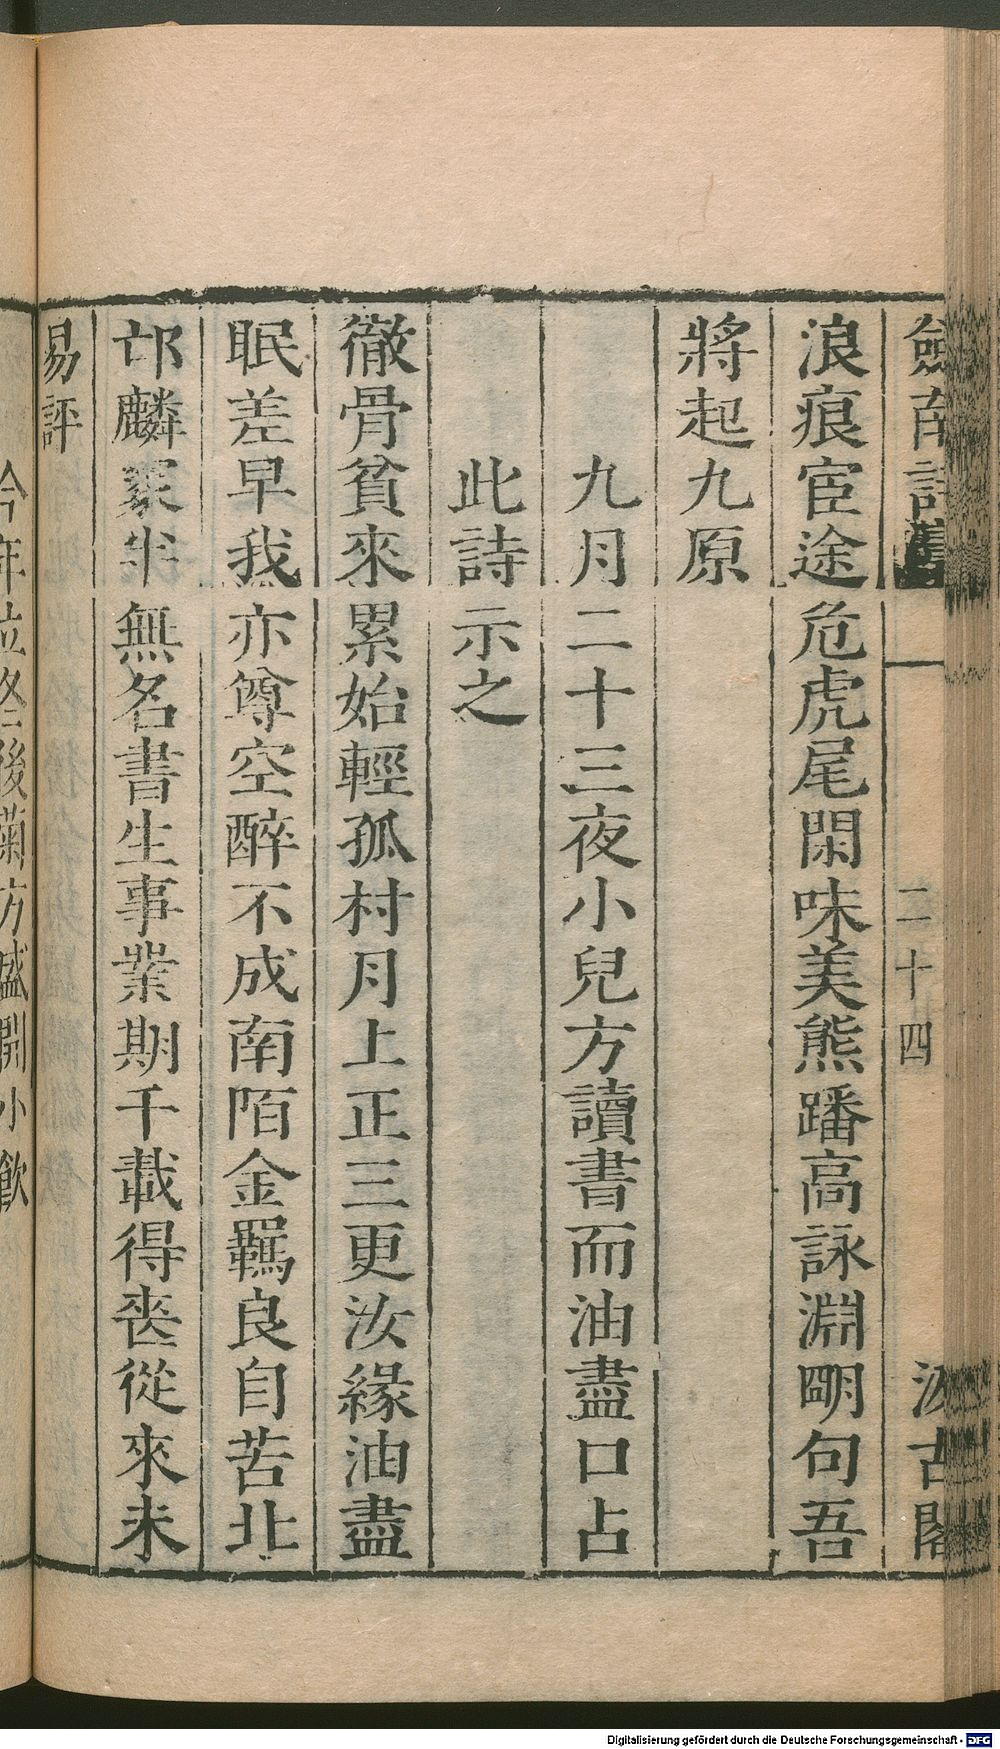 劍南詩 二十四 汲古閣
浪痕宦途危虎尾閑味美熊蹯高詠淵明句吾
將起九原
九月二十三夜小兒方讀書而油盡口占
此詩示之
徹骨貧來累始輕孤村月上正三更汝緣油盡
眠差早我亦尊空醉不成南陌金羈良自苦北
邙麟冢半無名書生事業期千載得喪從來未
易評
今年立冬後菊方盛開小飲
Digitalisierung gefördert durch die Deutsche Forschungsgemeinschaft - DFG